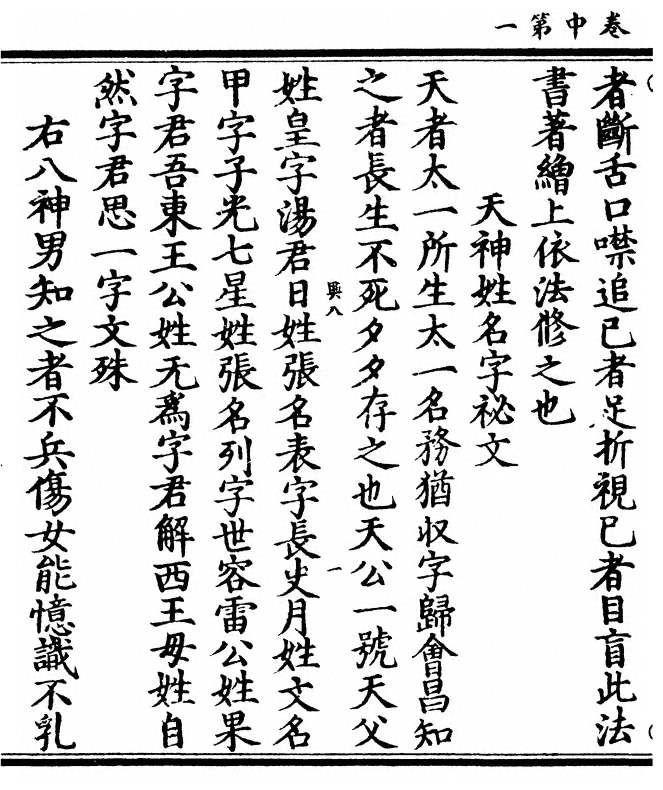 卷中第一
者斷舌口噤追已者足折視已者目盲此法
書著繒上依法修之也
天神姓名字祕文
天者太一所生太一名務猶收字歸會昌知
之者長生不死夕夕存之也天公一號天父
姓皇字湯君日姓張名表字長史月姓文名
興八
一
甲字子光七星姓張名列字世容雷公姓果
字君吾東王公姓无爲字君解西王母姓自
然字君思一字文殊
右八神男知之者不兵傷女能憶識不乳